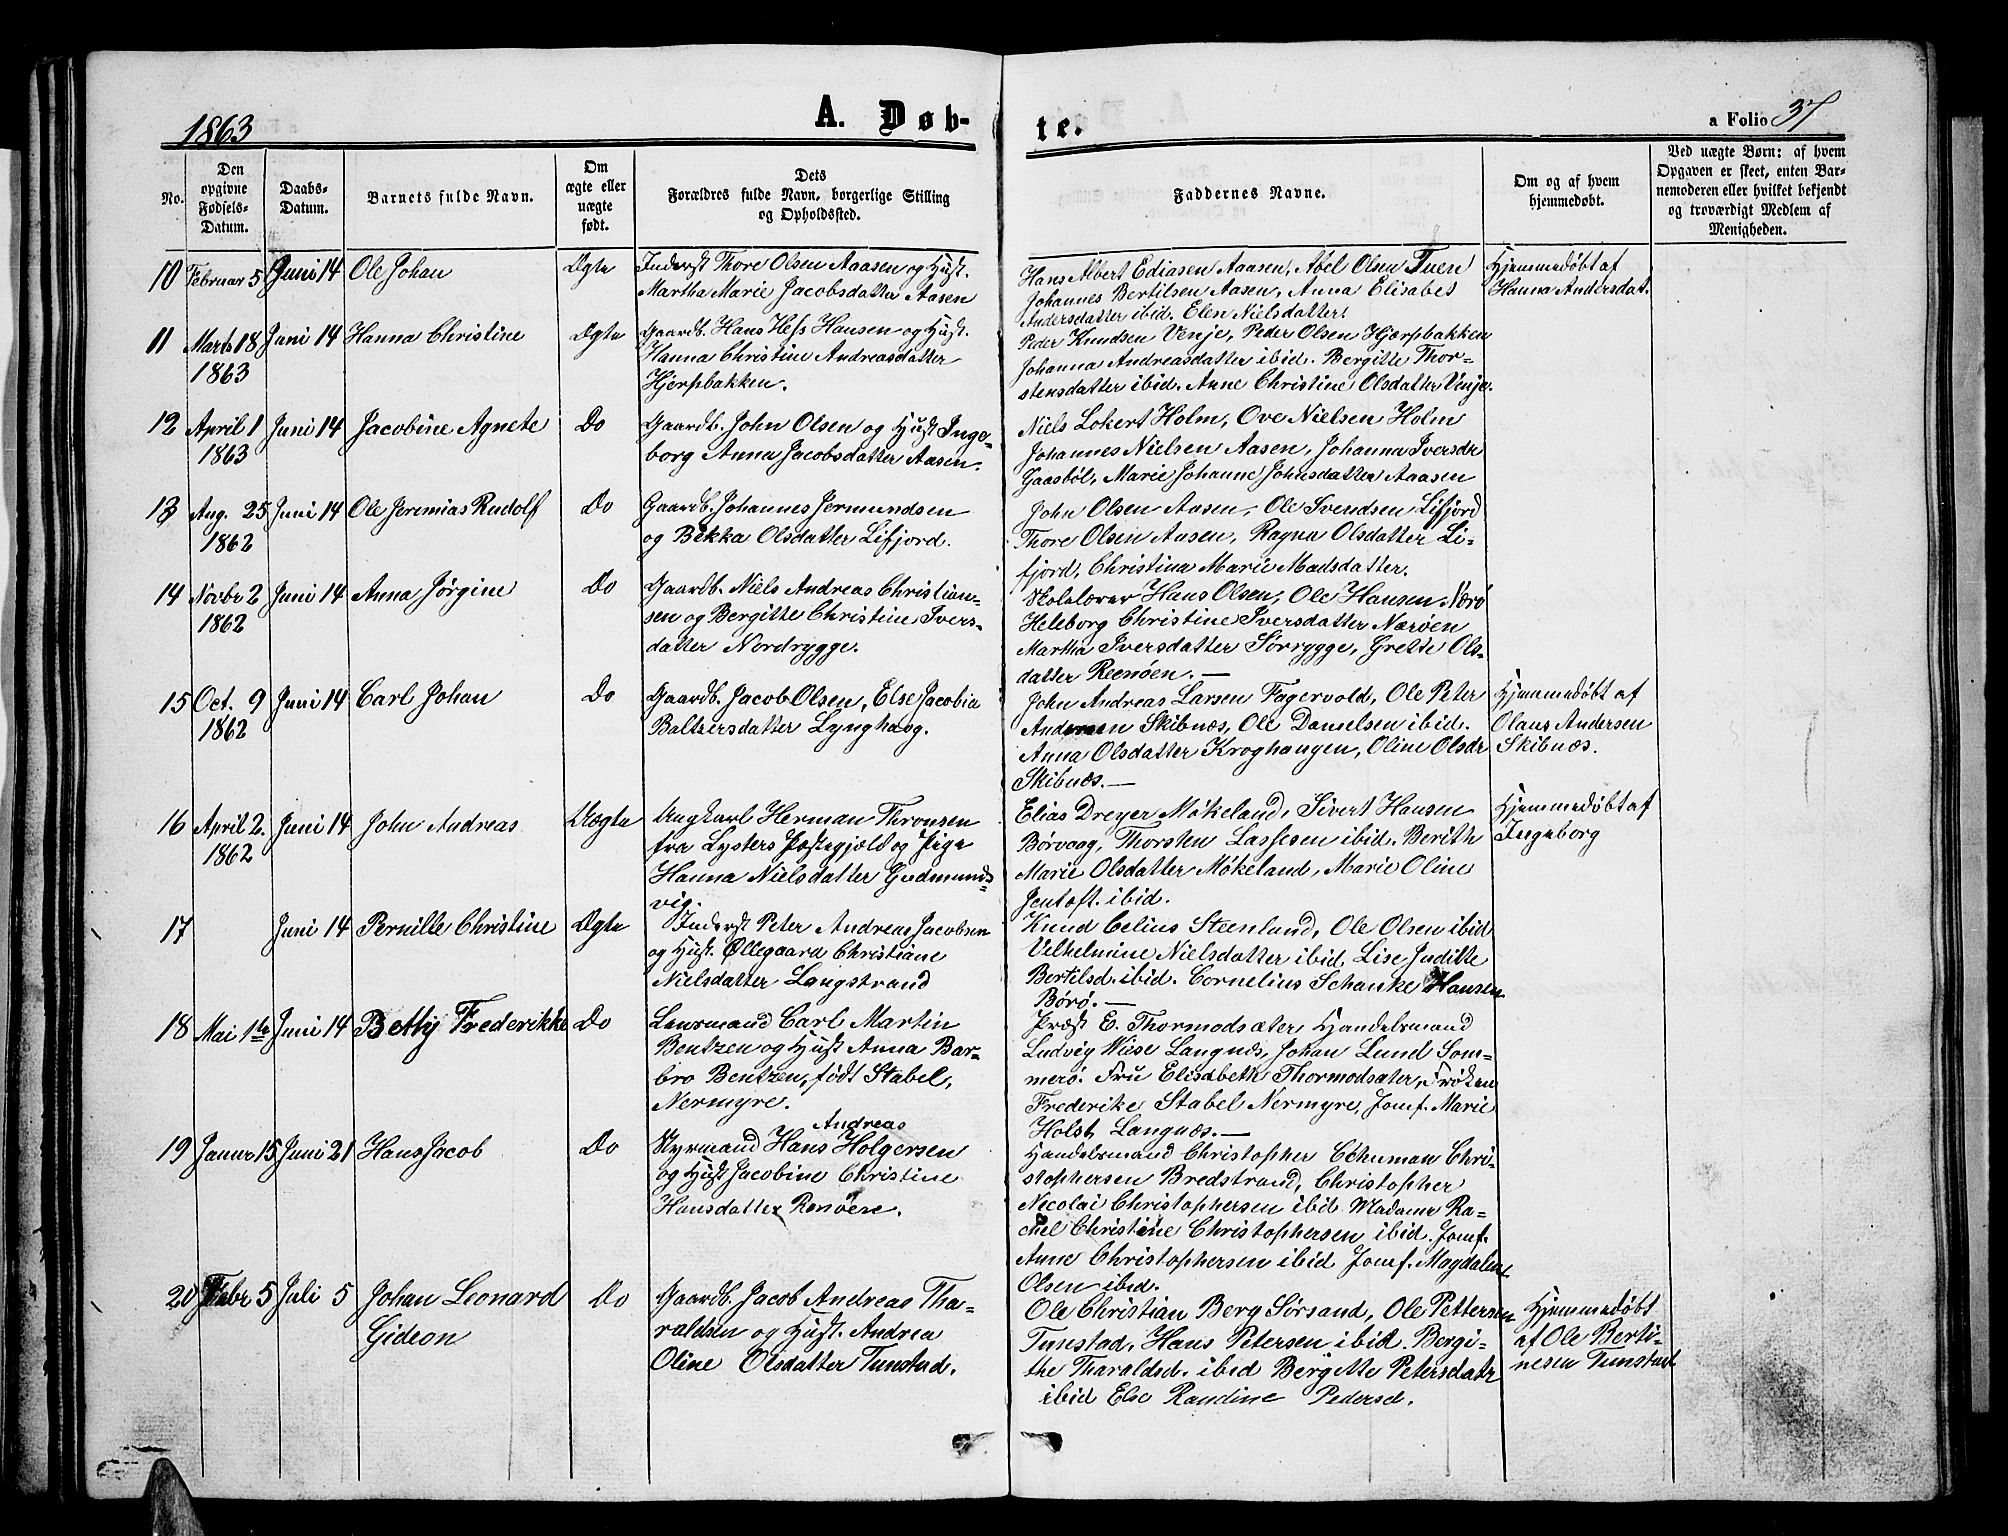 1863
A. Døb-
te.
a Folio 37
No.
Den opgivne Fødsels-Datum.
Daabs-Datum.
Barnets fulde Navn.
Om ægte eller uægte født.
Dets Forældres fulde Navn, borgerlige Stilling og Opholdssted.
Faddernes Navne.
Om og af hvem hjemmedøbt.
Ved uægte Børn: af hvem Opgaven er skeet, enten Barnemoderen eller hvilket bekjendt og troværdigt Medlem af Menigheden.
10 Februar 5 Juni 14 Ole Johan Ægte
Inderst Thore Olsen Aaasen og Hust.
Martha Marie Jacobsdatter Aasen
Hans Albert Ediasen Aaasen, Abel Olsen Tuen
Johannes Bertilsen Aasen, Anna Elisabet
Andersdatter ibid. Elen Nielsdatter
Hjemmedøbt af
Hanna Andersdat.
11 Marts 18 Juni 14 Hanna Christine Ægte
1863
Gaardb. Hans Hess Hansen og Hust.
Hanna Christine Andreasdatter
Hjerpbakken.
Peder Knudsen Venje, Peder Olsen Hjerpbakken
Johanna Andreasdatter ibid. Bergitte Thor-
stensdatter ibid. Anne Christine Olsdatter Venje.
12 April 1 Juni 14 Jacobine Agnete Do
1863
Gaardb. John Olsen og Hust Inge-
borg Anna Jacobsdatter Aasen.
Niels Lokert Holm, Ove Nielsen Holm
Johannes Nielsen Aasen, Johanna Iversdr
Gaasbøl, Marie Johanne Johnsdatter Aaasen
13 Aug. 25 Juni 14 Ole Jeremias Rudolf Do
1862
Gaardb. Johannes Jermundsen
og Bekka Olsdatter Lifjord.
John Olsen Aasen, Ole Svendsen Lifjord
Thore Olsen Aasen, Ragna Olsdatter Li-
fjord, Christina Marie Madsdatter.
14 Novbr 2 Juni 14 Anna Jørgine Do
1862
Gaardb. Niels Andreas Christian-
sen og Bergitte Christine Ivers-
datter Nordrygge.
Skolelærer Hans Olsen, Ole Hansen Nærø
Heleborg Christine Iversdatter Nærøen
Martha Iversdatter Sørrygge, Grette Ols-
datter Reenøen.—
15 Oct. 9 Juni 14 Carl Johan Do
1862
Gaardb. Jacob Olsen, Else Jacobia
Baltzersdatter Lynghaug.
John Andreas Larsen Fagervold, Ole Peter
Andersen Skibnæs, Ole Danielsen ibid.
Anna Olsdatter Kroghaugen, Oline Olsdr
Skibnæs.—
Hjemmedøbt af
Olaus Andersen
Skibnæs.
16 April 2. Juni 14 John Andreas Uægte
1862
Ungkarl Herman Thronsen
fra Lysters Præstegjæld og Pige
Hanna Nielsdatter Gudmunds-
vig.
Elias Dreyer Møkeland, Sivert Hansen
Børvaag, Thorsten Lassesen ibid. Berith
Marie Olsdatter Møkeland, Marie Oline
Jentoft ibid.
Hjemmedøbt af
Ingeborg
17 Juni 14 Pernille Christine Ægte
Inderst Peter Andreas Jacobsen
og Hust. Øllegaard Christiane
Nielsdatter Langstrand
Knud Celius Steenland, Ole Olsen ibid
Vilhelmine Nielsdatter ibid, Lise Juditte
Bertelsd. ibid. Cornelius Schanke Hansen
Børø.—
18 Mai 1ste Juni 14 Betty Frederikke Do
Lensmand Carl Martin
Bentzen og Hust Anna Bar-
bro Bentzen, født Stabel,
Nermyre.
Præst E. Thormodsæter, Handelsmand
Ludvig Wiese Langnæs, Johan Lund Som-
merø. Fru Elisabeth Thormodsæter, Frøken
Frederike Stabel Nermyre, Jomf. Marie
Holst Langnæs.—
19 Januar 15 Juni 21 Hans Jacob Do
Andreas
Styrmand Hans Holgersen
og Hust Jacobine Christine
Hansdatter Renøen.
Handelsmand Christopher Schuman Chri-
stophersen Bredstrand, Christopher
Nicolai Christophersen ibid. Madame Ra-
chel Christine Christophersen ibid. Jomf.
Anne Christophersen ibid Jomf. Magdalene
Olsen ibid.
20 Febr 5 Juli 5 Johan Leonard Do
Gideon
Gaardb. Jacob Andreas Tha-
raldsen og Hust. Andrea
Oline Olsdatter Tunstad.
Ole Christian Berg Sørsand, Ole Pettersen
Tunstad, Hans Petersen ibid. Bergi-
the Tharaldsd. ibid Bergitte Petersdatr
ibid Else Randine Pedersd.
Hjemmedøbt
af Ole Berti-
nesen Tunstad